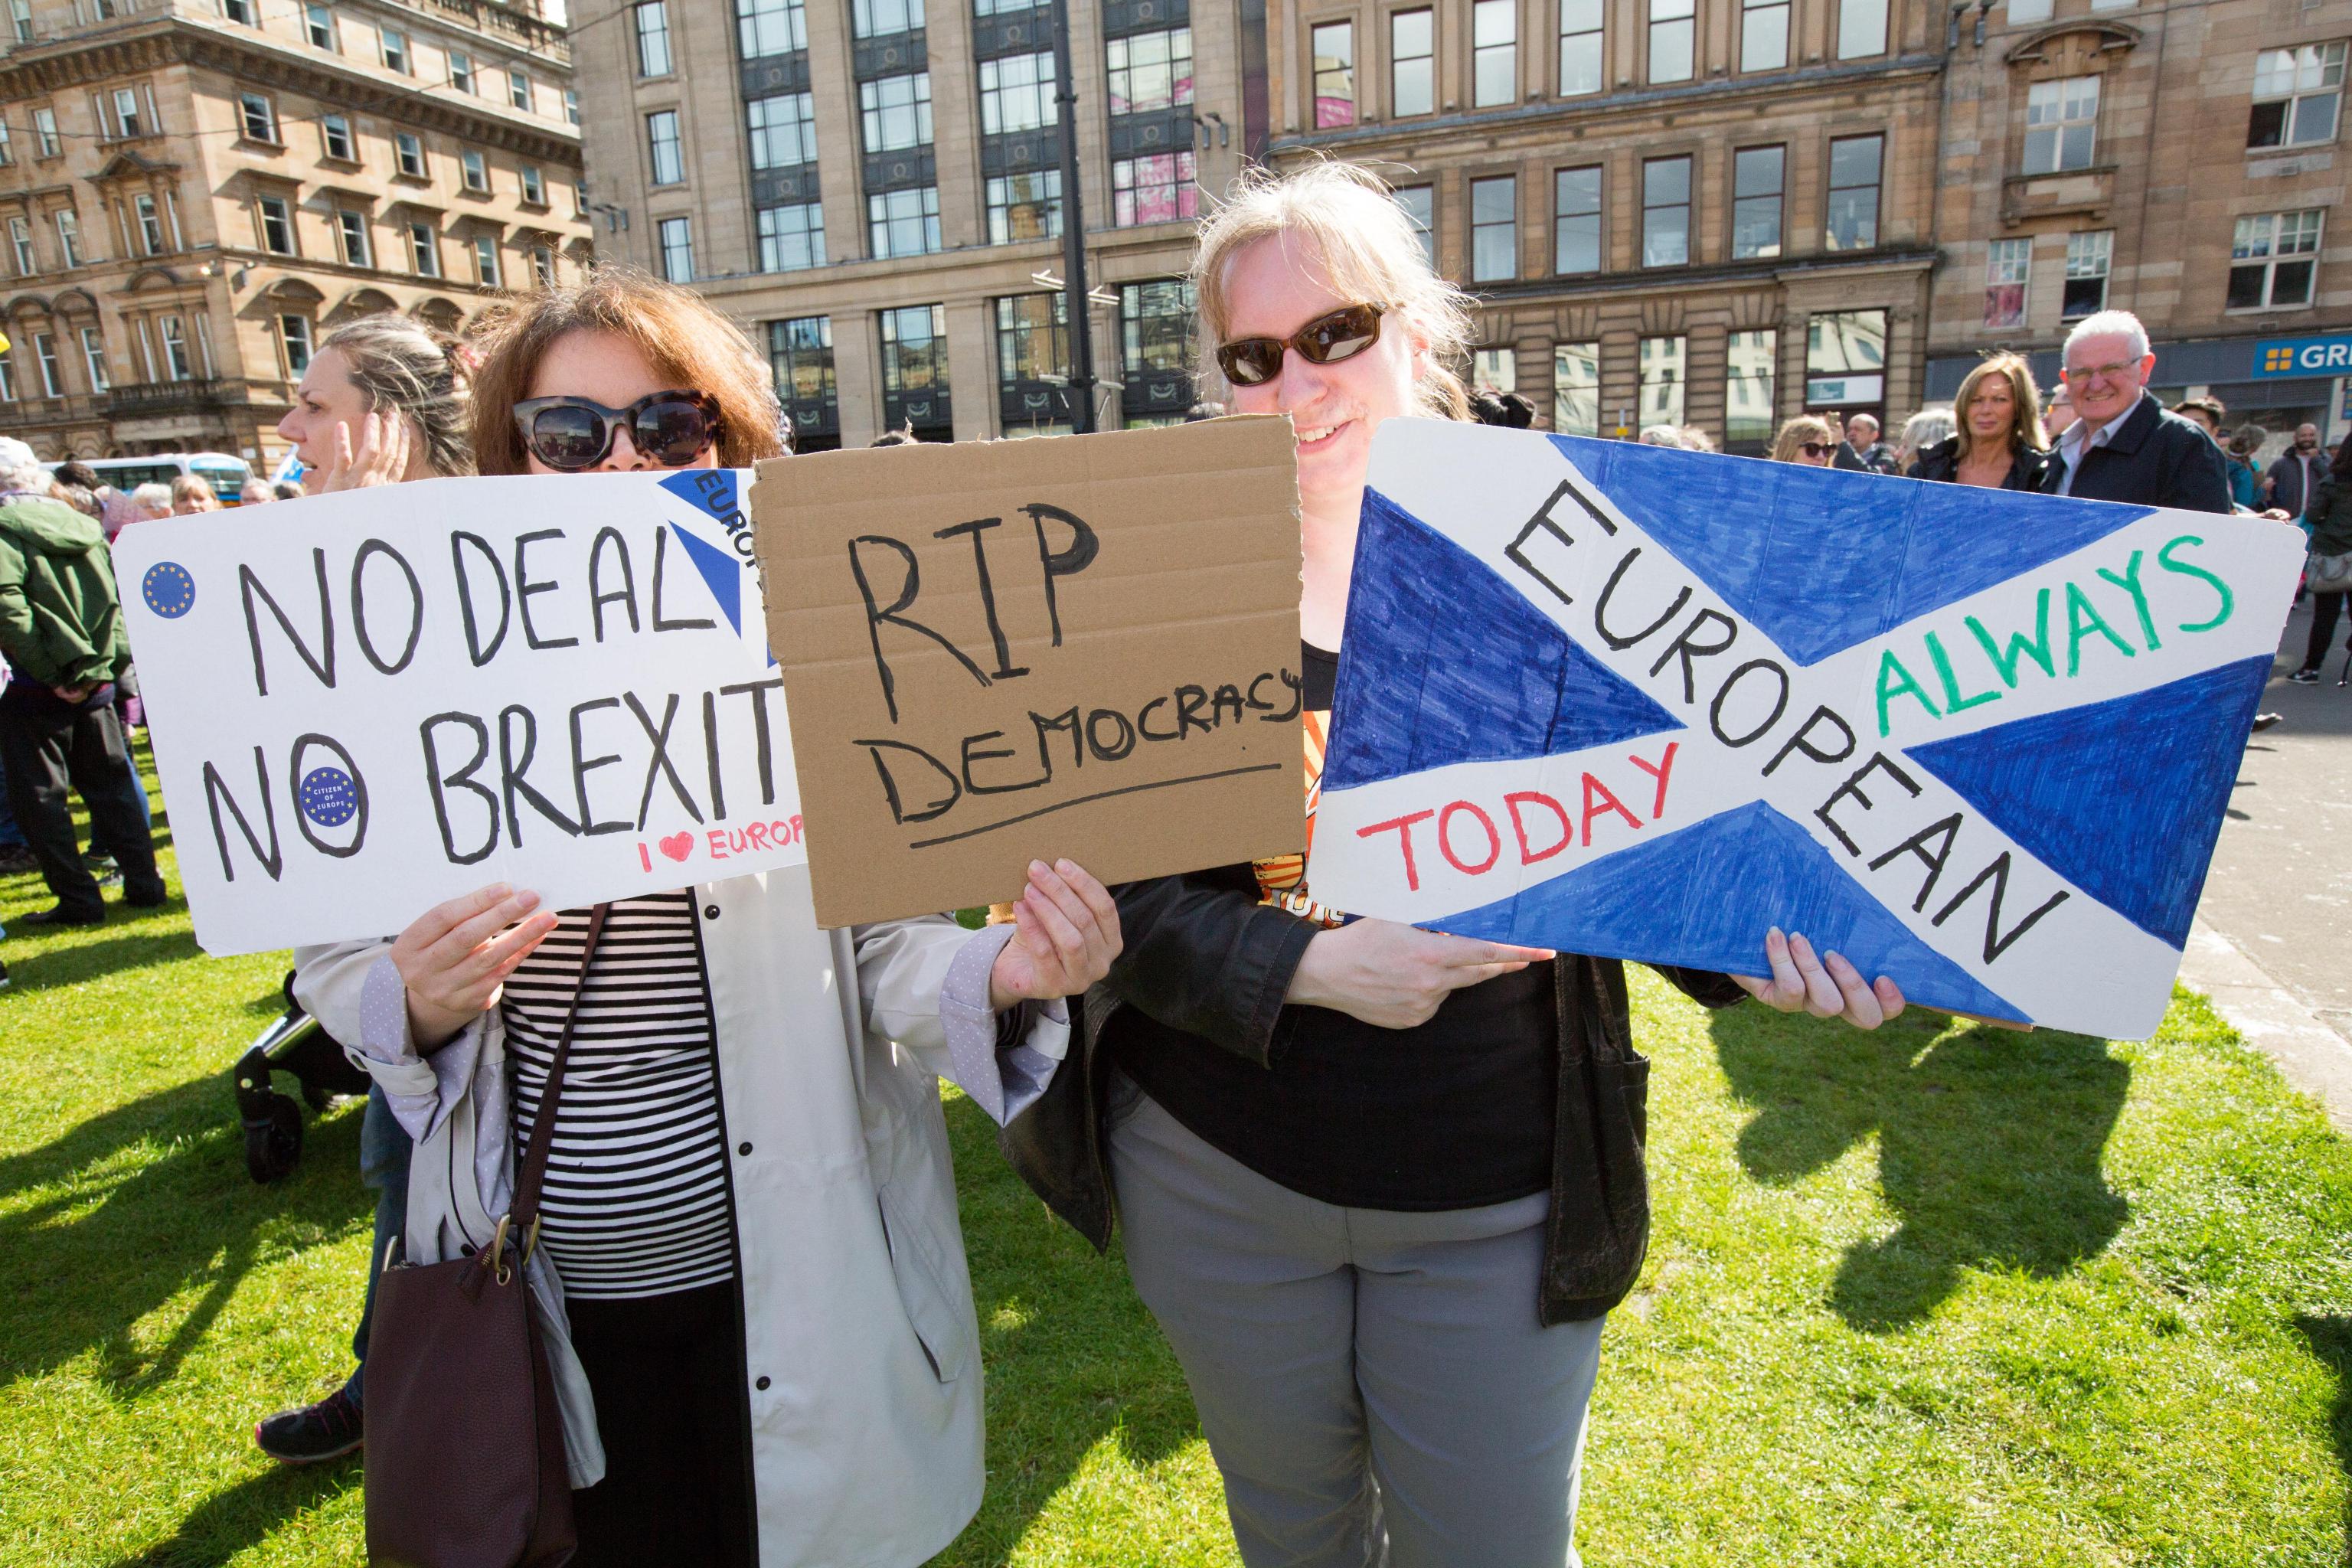 NO DEAL
NO BREXIT
CITIZEN
OF
EUROPE
I ♥ EUROP
EURO
RIP
DEMOCRACY
EUROPEAN
ALWAYS
TODAY
GR